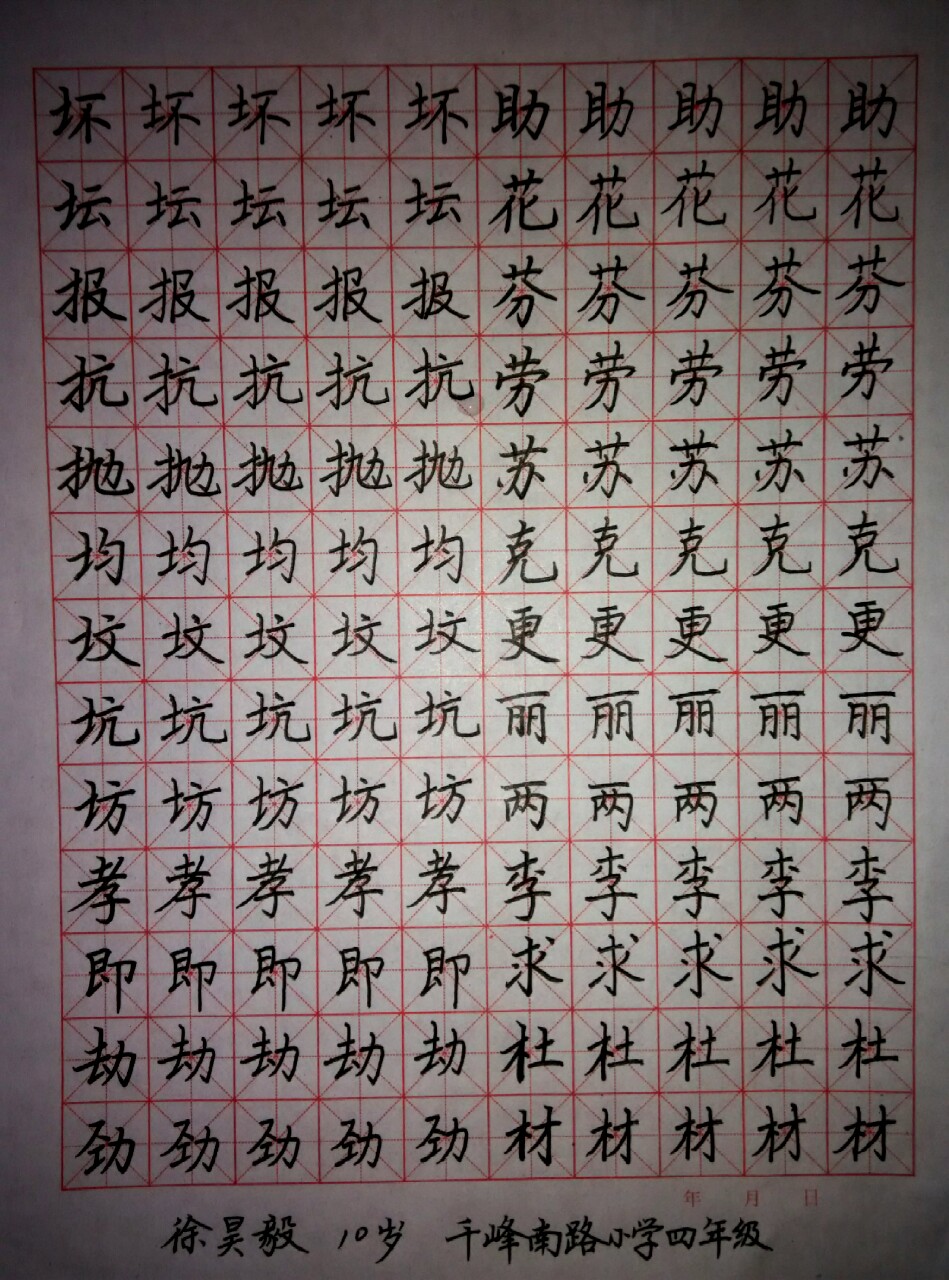 坏坏坏坏坏助助助助助
坛坛坛坛坛花花花花花
报报报报报芬芬芬芬芬
抗抗抗抗抗劳劳劳劳劳
抛抛抛抛抛苏苏苏苏苏
均均均均均克克克克克
坟坟坟坟坟更更更更更
坑坑坑坑坑丽丽丽丽丽
坊坊坊坊坊两两两两两
孝孝孝孝孝李李李李李
即即即即即求求求求求
劫劫劫劫劫杜杜杜杜杜
劲劲劲劲劲材材材材材
年 月 日
徐昊毅 10岁 千峰南路小学四年级